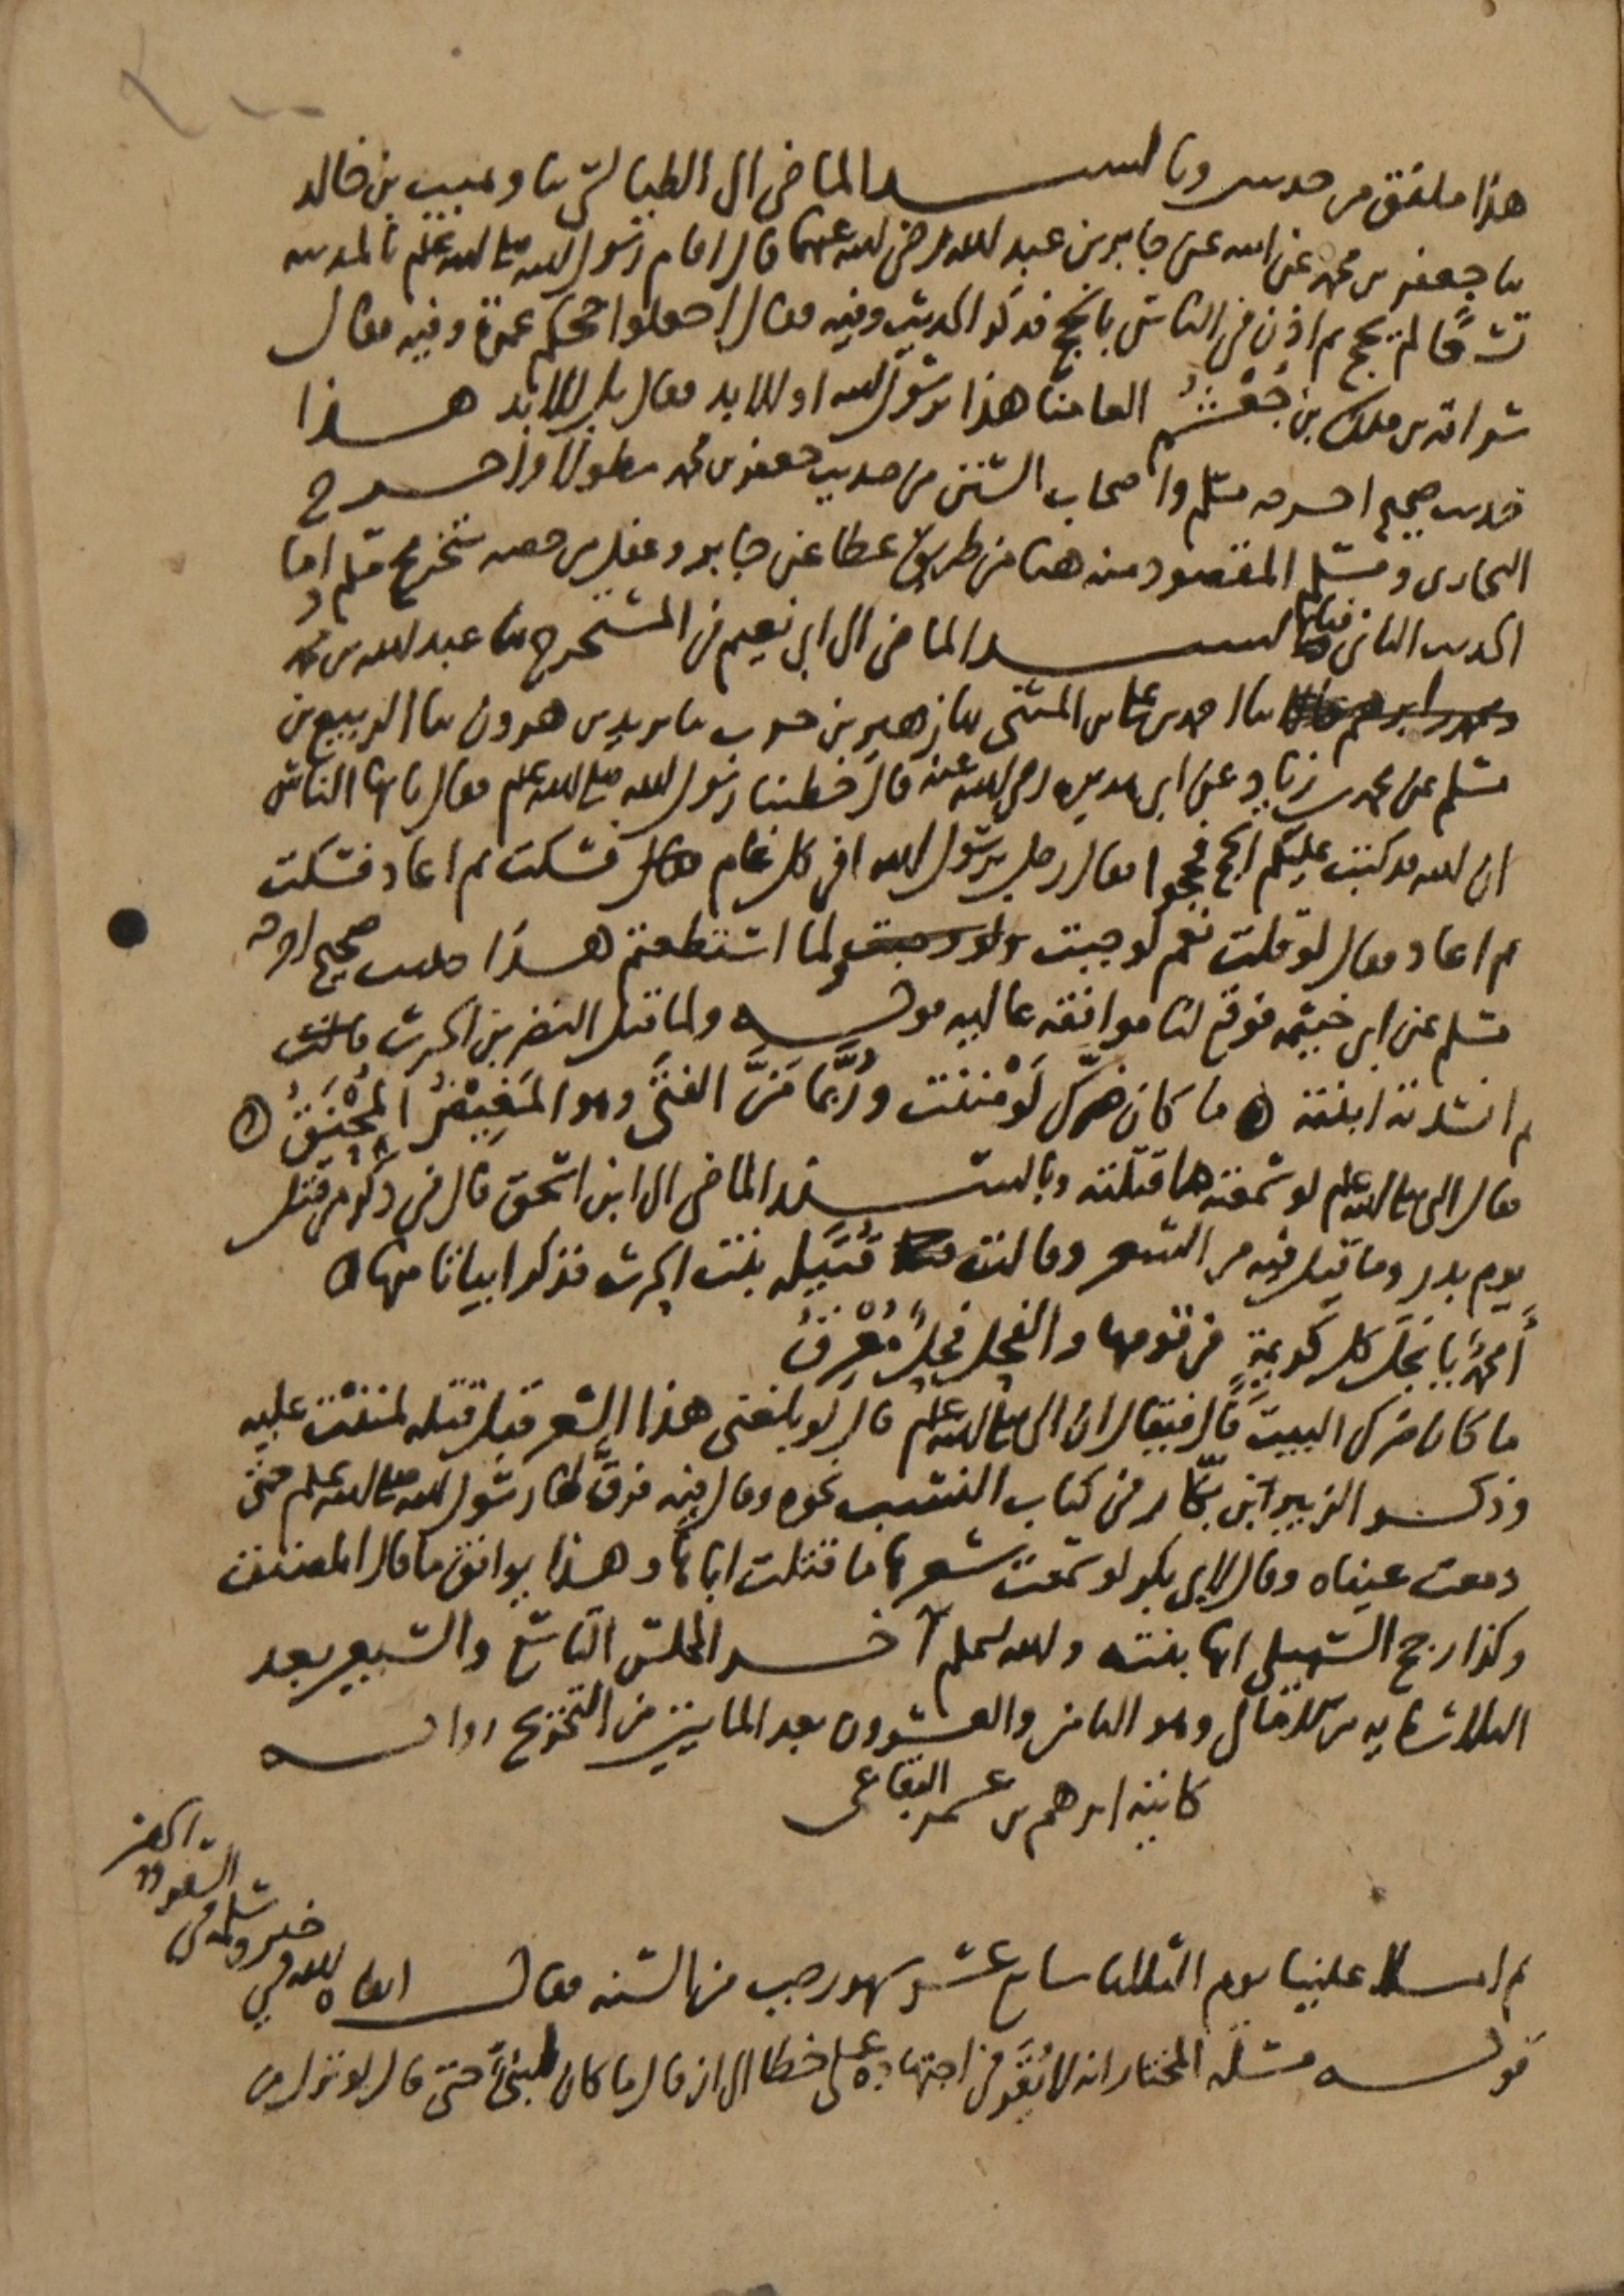 هذا ملفق من حديثين وبالسند الماضي الى الطيالسي ثنا وهيب بن خالد
ثنا جعفر بن محمد عن ابيه عن جابر بن عبد الله رضي الله عنهما قال اقام رسول الله صلى الله عليه وسلم بالمدينة
تسعا لم يحج ثم اذن في الناس بالحج فذكر الحديث وفيه فقال اجعلوا حجكم عمرة وفيه فقال
سراقة بن ملك بن جعشم العامنا هذا يرسول الله او للابد فقال بل للابد هذا
حديث صحيح اخرجه مسلم واصحاب السنن من حديث جعفر بن محمد مطولا واخرج
البخاري ومسلم المقصود منه هنا من طريق عطا عن جابر وغفل من خصه بتخريج مسلم واما
الحديث الثاني فبالسند الماضي الى ابي نعيم في المستخرج ثنا عبد الله بن محمد
ومحمد بن ابرهيم قالا ثنا احمد بن علي بن المثنى ثنا زهير بن حرب ثنا يزيد بن هرون ثنا الربيع بن
مسلم عن محمد بن زياد عن ابي هريرة رضي الله عنه قال خطبنا رسول الله صلى الله عليه وسلم فقال يا ايها الناس
ان الله قد كتب عليكم الحج فحجوا فقال رجل يرسول الله افي كل عام فسكت ثم اعاد فسكت
ثم اعاد فقال لو قلت نعم لوجبت ولو وجبت ولما استطعتم هذا حديث صحيح اخرجه
مسلم عن ابي خيثمة فوقع لنا موافقة عالية قوله ولما قتل النضر بن الحرث
ثم انشدته ابنته ما كان ضرك لو مننت وربما من الفتى وهو المغيظ المحنق
فقال النبي صلى الله عليه وسلم لو سمعته ما قتلته وبالسند الماضي الى ابن اسحق قال في ذكر من قتل
يوم بدر وما قيل فيه من الشعر وقالت قتيلة بنت الحرث فذكر ابياتا منها
أمحمد يا نجل كل كريمة في قومها والفحل فحل معرق
ما كان ضرك البيت قال فيقال ان النبي صلى الله عليه وسلم قال لو بلغني هذا الشعر قبل قتله لمننت عليه
وذكر الزبير ابن بكار في كتاب النسب نحوه وقال فيه فرق لها رسول الله صلى الله عليه وسلم حتى
دمعت عيناه وقال لابي بكر لو سمعت شعرها ما قتلت اباها وهذا يوافق ما قال المصنف
وكذا رجح السهيلي انها بنته والله اعلم آخر المجلس التاسع والسبعين بعد
الثلاثمايه من الامالي وهو الثامن والعشرون بعد المايتين من التخريج رواية
كاتبه ابرهيم بن عمر البقاعي
ثم املا علينا يوم الثلاثا سابع عشر شهر رجب من السنه فقال ابقاه الله في
خير وسلمه في
السفر والحضر
قوله مسئله المختار انه لا يقر في اجتهاده على خطا الى ان قال ما كان لنبي حتى قال لو نزل من